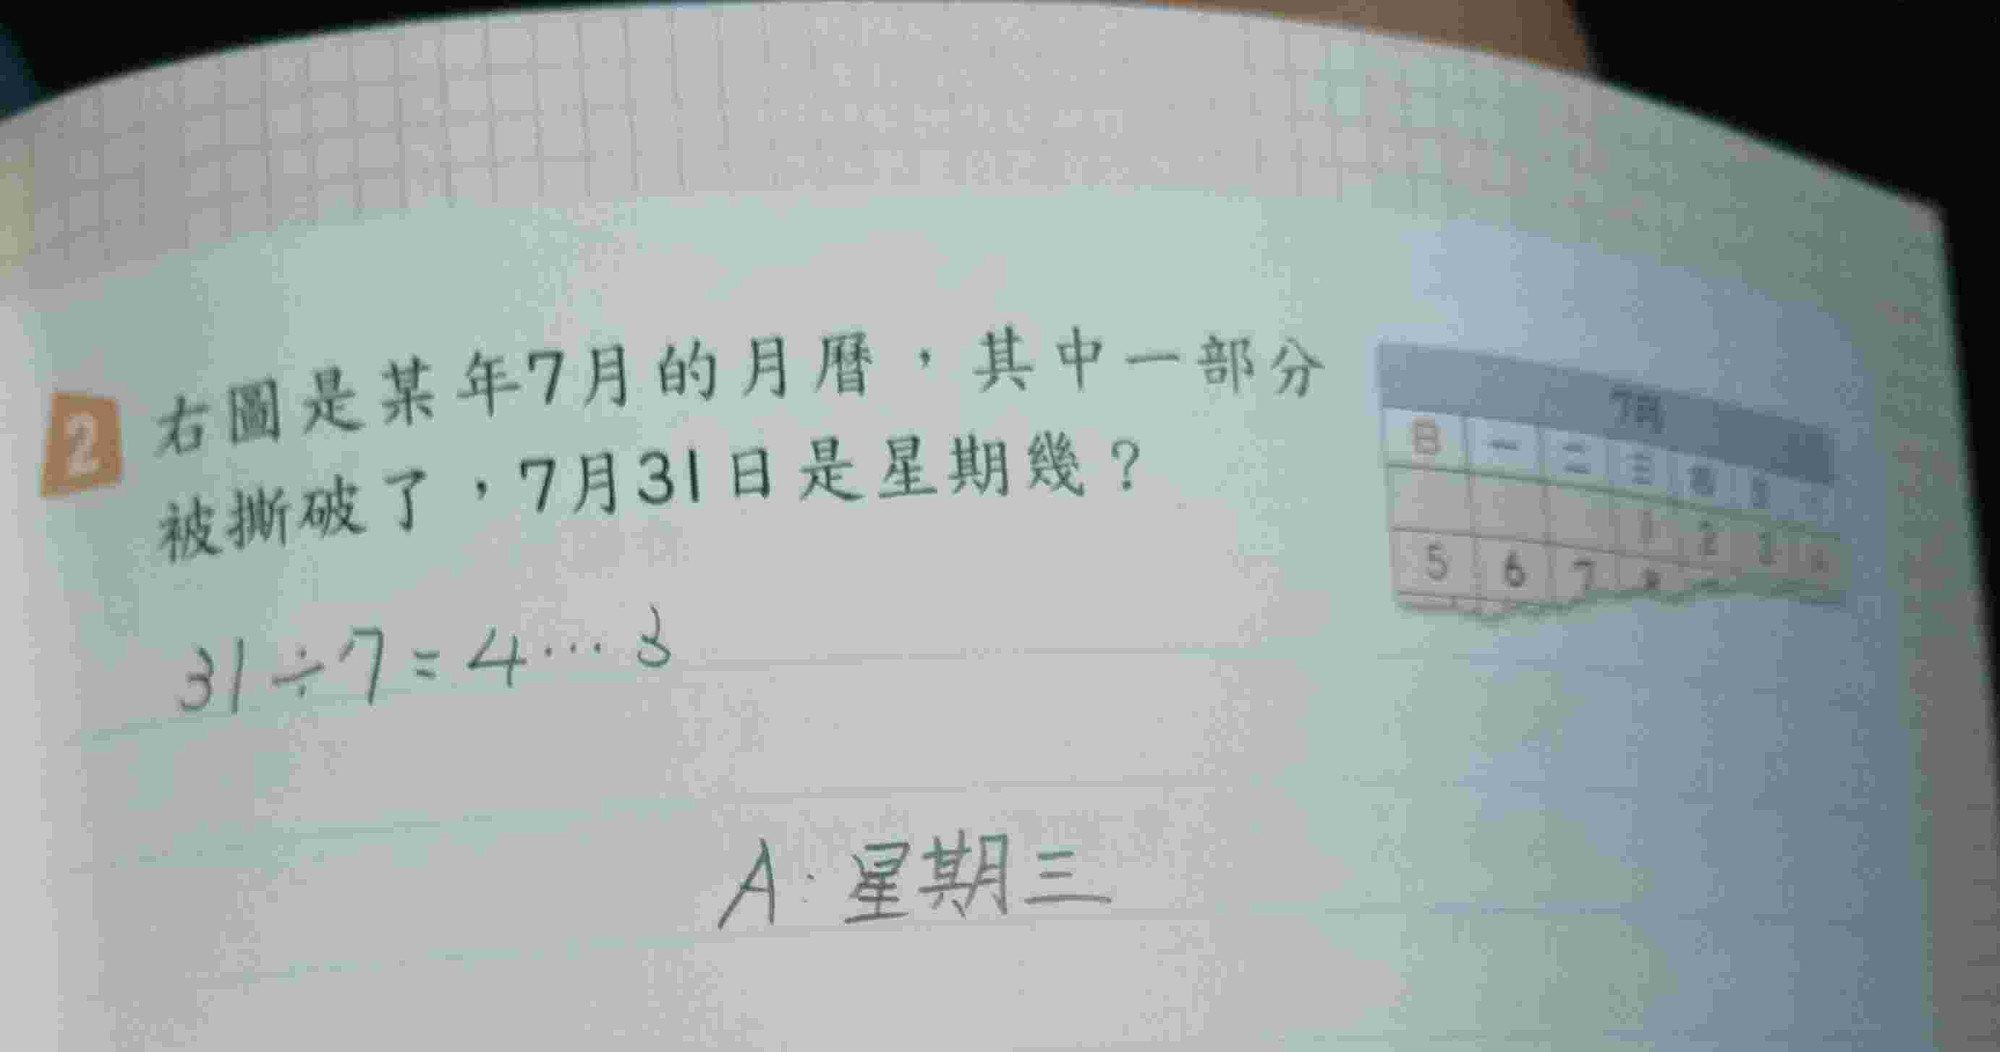 2 右圖是某年7月的月曆，其中一部分
被撕破了，7月31日是星期幾？
7月
日 一 二 三 四 五
1 2 3 4
5 6 7 8
31÷7=4…3
A：星期三